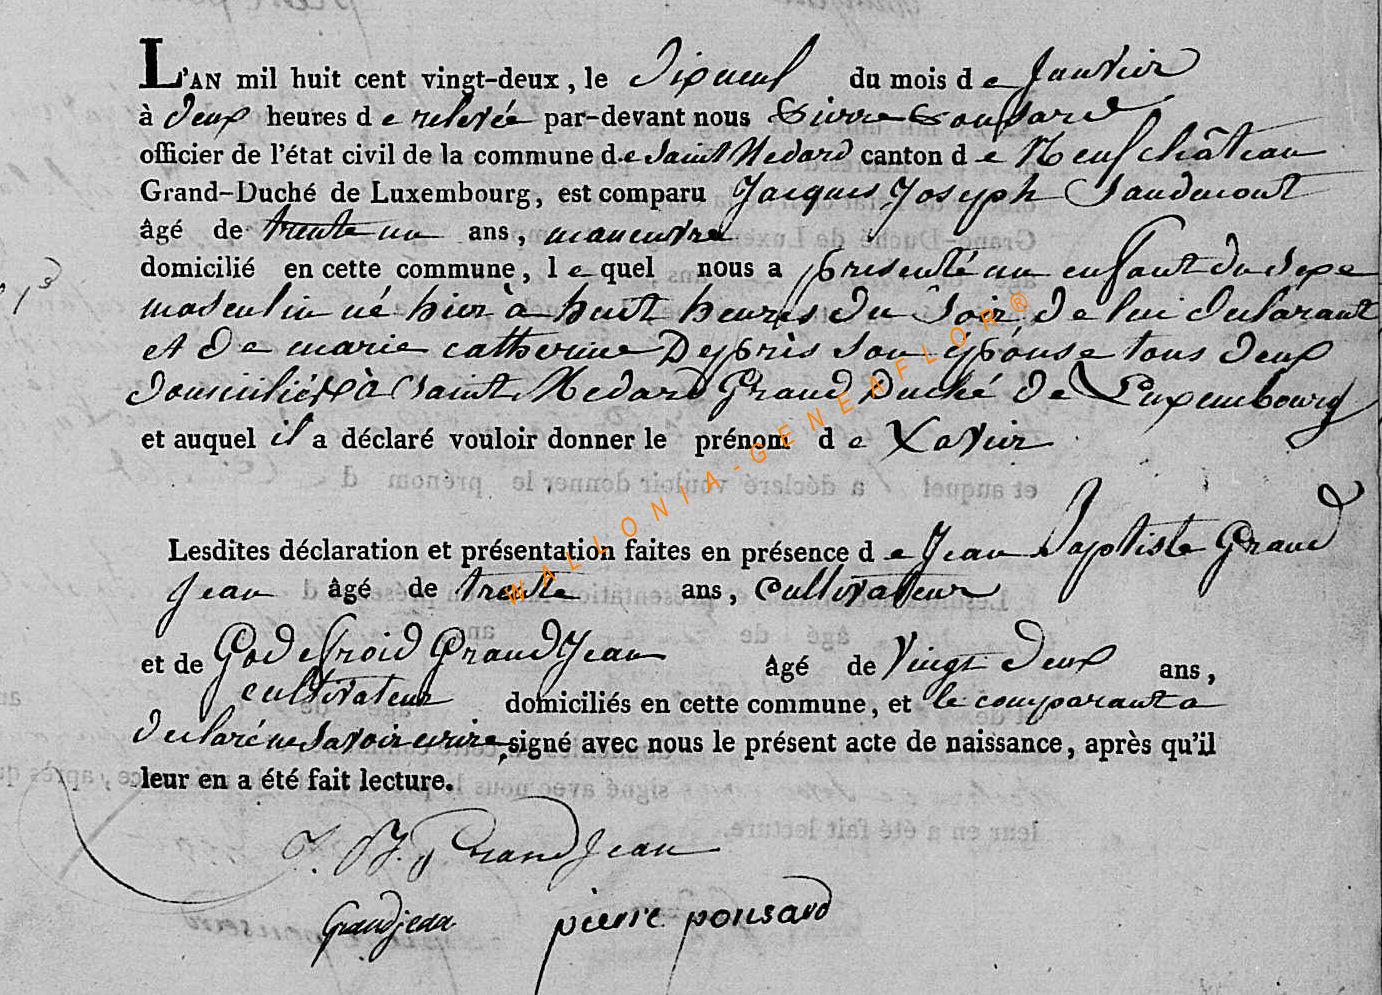 L'AN mil huit cent vingt-deux, le dixneuf du mois de Janvier
à deux heures de relevée par-devant nous Pierre Ponsard
officier de l'état civil de la commune de Saint Medard canton de Neufchâteau
Grand-Duché de Luxembourg, est comparu Jacques Joseph
âgé de trente un ans, manœuvre
domicilié en cette commune, lequel nous a présenté un enfant du sexe
masculin né hier à huit heures du soir, de lui déclarant
et de marie catherine Depris son épouse tous deux
domiciliés à Saint Medard Grand Duché de Luxembourg
et auquel il a déclaré vouloir donner le prénom de Xavier
Lesdites déclaration et présentation faites en présence de Jean Baptiste Grand
Jean âgé de trente ans, cultivateur
et de Godefroid GrandJean âgé de vingt deux ans,
cultivateur domiciliés en cette commune, et le comparant a
déclaré ne savoir ecrire, signé avec nous le présent acte de naissance, après qu'il
leur en a été fait lecture.
J. B. GrandJean
Grandjean pierre ponsard
WALLONIA-GENEAFLOR®